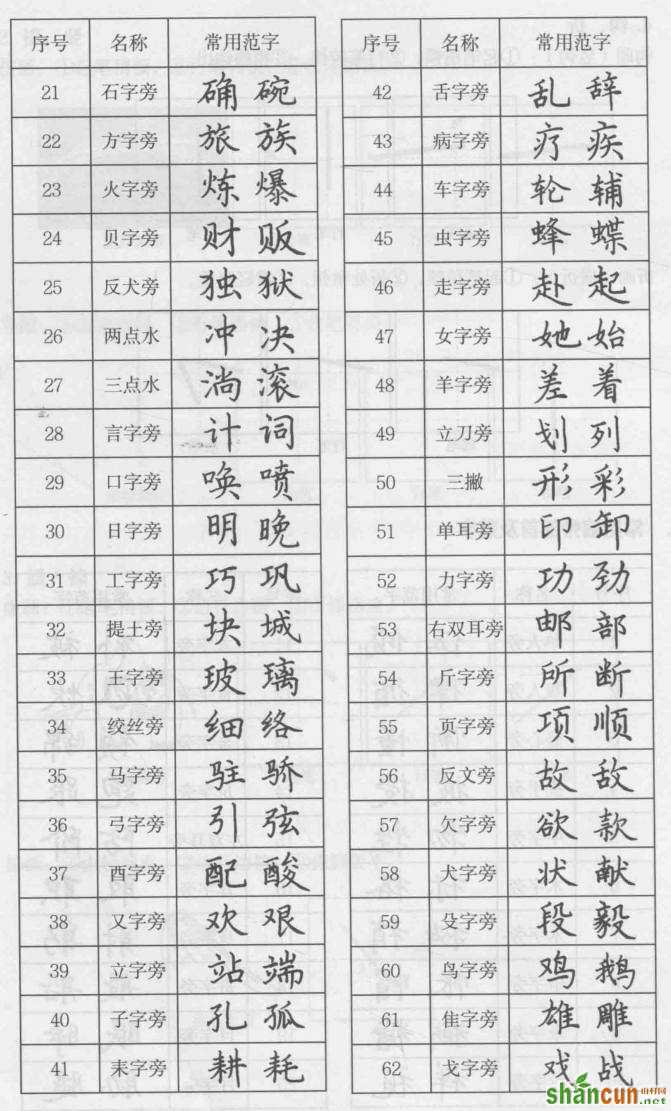 序号 名称 常用范字
21 石字旁 确 碗
22 方字旁 旅 族
23 火字旁 炼 爆
24 贝字旁 财 贩
25 反犬旁 独 狱
26 两点水 冲 决
27 三点水 淌 滚
28 言字旁 计 词
29 口字旁 唤 喷
30 日字旁 明 晚
31 工字旁 巧 巩
32 提土旁 块 城
33 王字旁 玻 璃
34 绞丝旁 细 络
35 马字旁 驻 骄
36 弓字旁 引 弦
37 酉字旁 配 酸
38 又字旁 欢 艰
39 立字旁 站 端
40 子字旁 孔 孤
41 耒字旁 耕 耗
序号 名称 常用范字
42 舌字旁 乱 辞
43 病字旁 疗 疾
44 车字旁 轮 辅
45 虫字旁 蜂 蝶
46 走字旁 赴 起
47 女字旁 她 始
48 羊字旁 差 着
49 立刀旁 划 列
50 三撇 形 彩
51 单耳旁 印 卸
52 力字旁 功 劲
53 右双耳旁 邮 部
54 斤字旁 所 断
55 页字旁 项 顺
56 反文旁 故 敌
57 欠字旁 欲 款
58 犬字旁 状 献
59 殳字旁 段 毅
60 鸟字旁 鸡 鹅
61 隹字旁 雄 雕
62 戈字旁 戏 战
shancun
山村网
.net